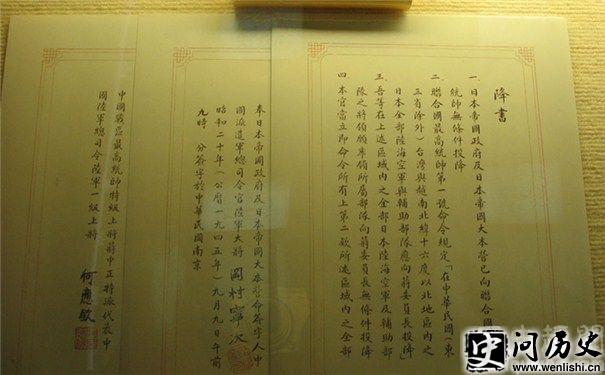 降書
一 日本帝國政府及日本帝國大本營已向聯合國
統帥無條件投降
二 聯合國最高統帥第一號命令規定「在中華民國(東
三省除外)台灣與越南北緯十六度以北地區內之
日本全部陸海空軍與輔助部隊應向蔣委員長投降」
三 吾等在上述區域內之全部日本陸海空軍及輔助部
隊之將領願率領所屬部隊向蔣委員長無條件投降
四 本官當立即命令所有上第二款所述區域內之全部
奉日本帝國政府及日本帝國大本營命簽字人中
國派遣軍總司令官陸軍大將 岡村寧次
昭和二十年(公曆一九四五年)九月九日午前
九時 分簽字於中華民國南京
中國戰區最高統帥特級上將蔣中正特派代表中
國陸軍總司令陸軍一級上將
何應欽
史 问历史
www.wenlishi.cn